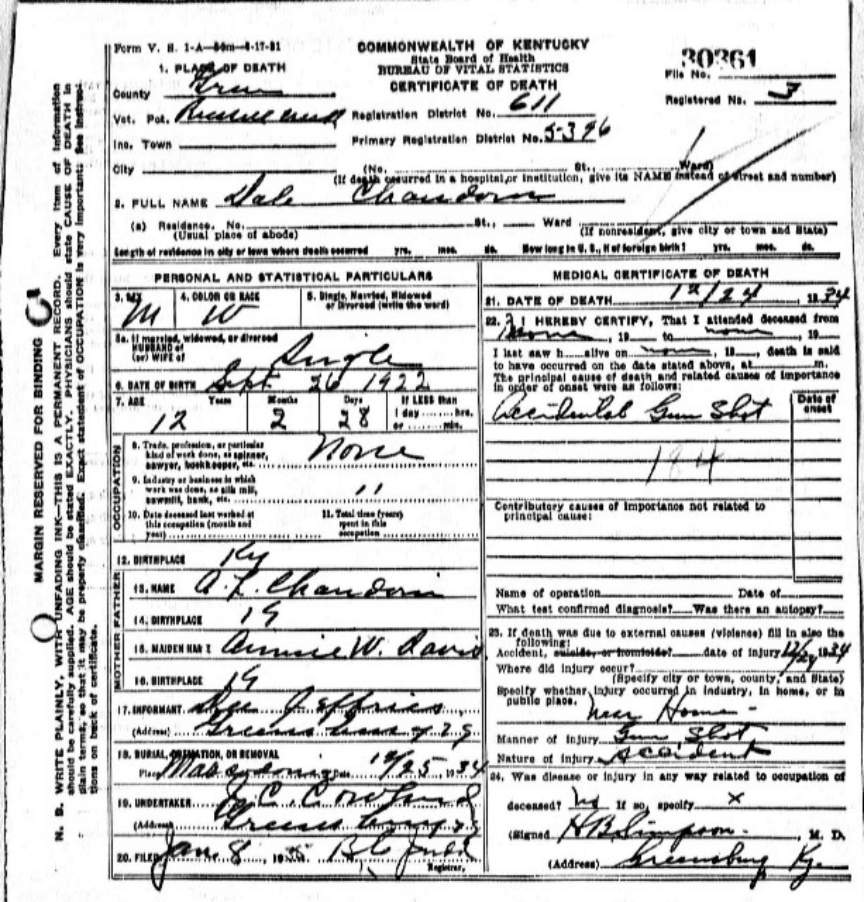 Form V. S. 1-A—50m—8-17-31
COMMONWEALTH OF KENTUCKY
State Board of Health
BUREAU OF VITAL STATISTICS
CERTIFICATE OF DEATH
30361
File No.
Registered No. 3
1. PLACE OF DEATH
County Green
Vot. Pct. Registration District No. 611
Inc. Town Primary Registration District No. 5396
City (No. St., Ward)
(If death occurred in a hospital, or institution, give its NAME instead of street and number)
2. FULL NAME Dale Chaudoin
(a) Residence. No. St., Ward
(Usual place of abode) (If nonresident, give city or town and State)
Length of residence in city or town where death occurred yrs. mos. ds. How long in U. S., if of foreign birth? yrs. mos. ds.
PERSONAL AND STATISTICAL PARTICULARS
3. SEX 4. COLOR OR RACE 5. Single, Married, Widowed
or Divorced (write the word)
M W
5a. If married, widowed, or divorced
HUSBAND of
(or) WIFE of Single
6. DATE OF BIRTH Sept 26 1922
7. AGE Years Months Days If LESS than
1 day hrs.
or min.
12 2 28
OCCUPATION
8. Trade, profession, or particular
kind of work done, as spinner,
sawyer, bookkeeper, etc. None
9. Industry or business in which
work was done, as silk mill,
sawmill, bank, etc. "
10. Date deceased last worked at
this occupation (month and
year)
11. Total time (years)
spent in this
occupation
12. BIRTHPLACE Ky
FATHER
13. NAME A. L. Chaudoin
14. BIRTHPLACE
MOTHER
15. MAIDEN NAME Annie W. Davis
16. BIRTHPLACE
17. INFORMANT Jeffries
(Address) Greensburg Ky
18. BURIAL, CREMATION, OR REMOVAL
Place Date 12/25 1934
19. UNDERTAKER J. C. Cowherd
(Address) Greensburg Ky
20. FILED Jan 8, 1935
Registrar.
MEDICAL CERTIFICATE OF DEATH
21. DATE OF DEATH 12/24, 1934
22. I HEREBY CERTIFY, That I attended deceased from
none, 19 to none, 19
I last saw h alive on none, 19, death is said
to have occurred on the date stated above, at m.
The principal cause of death and related causes of importance
in order of onset were as follows:
Date of
onset
Accidental Gun Shot
184
Contributory causes of importance not related to
principal cause:
Name of operation Date of
What test confirmed diagnosis? Was there an autopsy?
23. If death was due to external causes (violence) fill in also the
following:
Accident, suicide, or homicide? date of injury 12/24 1934
Where did injury occur?
(Specify city or town, county, and State)
Specify whether injury occurred in industry, in home, or in
public place.
near Home-
Manner of injury Gun Shot
Nature of injury Accident
24. Was disease or injury in any way related to occupation of
deceased? No If so, specify x
(Signed H B Simpson, M. D.
(Address) Greensburg Ky.
MARGIN RESERVED FOR BINDING
N. B. WRITE PLAINLY, WITH UNFADING INK—THIS IS A PERMANENT RECORD. Every item of information
should be carefully supplied. AGE should be stated EXACTLY. PHYSICIANS should state CAUSE OF DEATH in
plain terms, so that it may be properly classified. Exact statement of OCCUPATION is very important. See instruc-
tions on back of certificate.